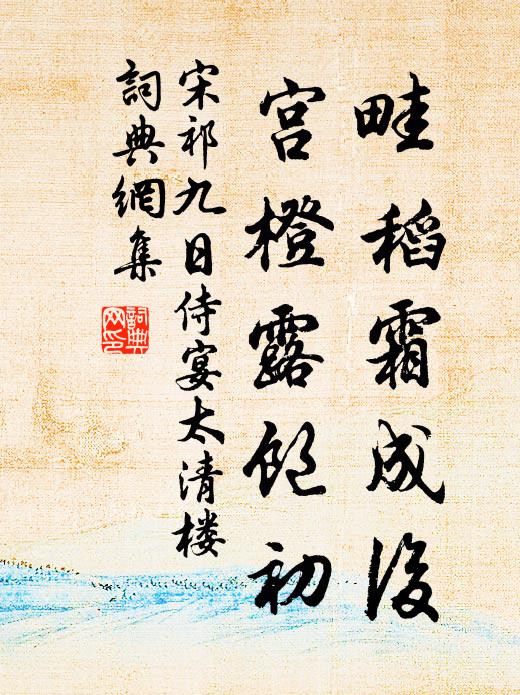 畦稻霜成後
宫橙露飽初
宋祁九日侍宴太清楼
詞典網集
詞典网印